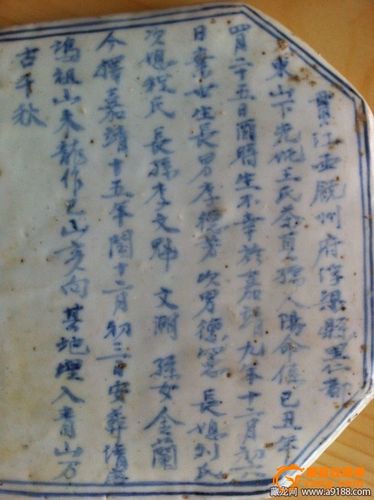 貫江西饒州府浮梁縣里仁都
東山下先妣王氏貞孺人陽命係己丑年
四月二十五日酉時生不幸於嘉靖九年十二月初六
日棄世生長男李德芳次男德寬長媳刘氏
次媳程氏長孫李文 文潤孫女金蘭
今擇嘉靖十五年閏十二月初三日安葬
祖山未龍作巳山亥向其地埋入青山万
古千秋
藏龙网 www.a9188.com